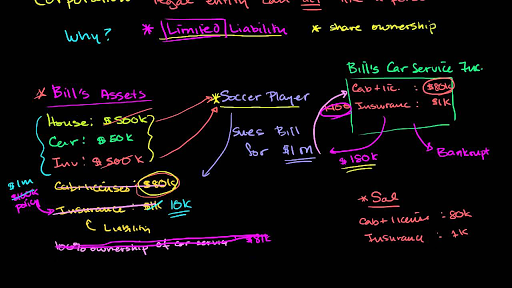 Corporation legal entity can act like a person
Why? * Limited Liability * share ownership
Bill's Car Service Inc.
Cab + lic. : $80k
Insurance : $1k
* Bill's Assets
House: $500k
Car: $50k
Inv: $500k
Cab licenses: $80k
Insurance: $1k 10k
Liability
100% ownership of car service $81k
$1m
$100k
policy
* Soccer Player
sues Bill
for $1M
$100k
$180k
Bankrupt
* Sal
Cab + license : 80k
Insurance : 1k